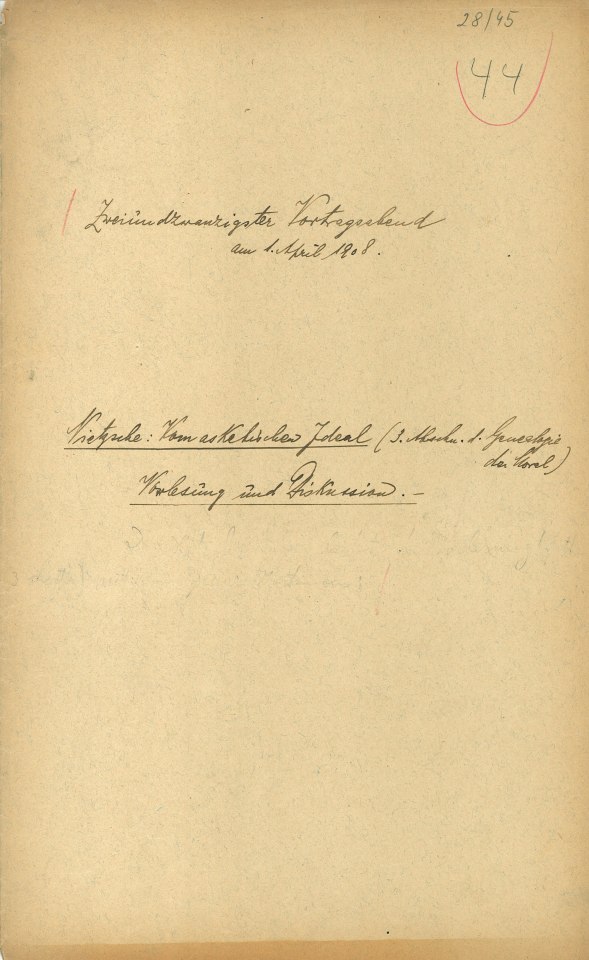 28/45
44
Zweiundzwanzigster Vortragsabend
am 1. April 1908.
Nietzsche: Vom asketischen Ideal (3. Abschn. d. Genealogie
der Moral)
Vorlesung und Diskussion. –